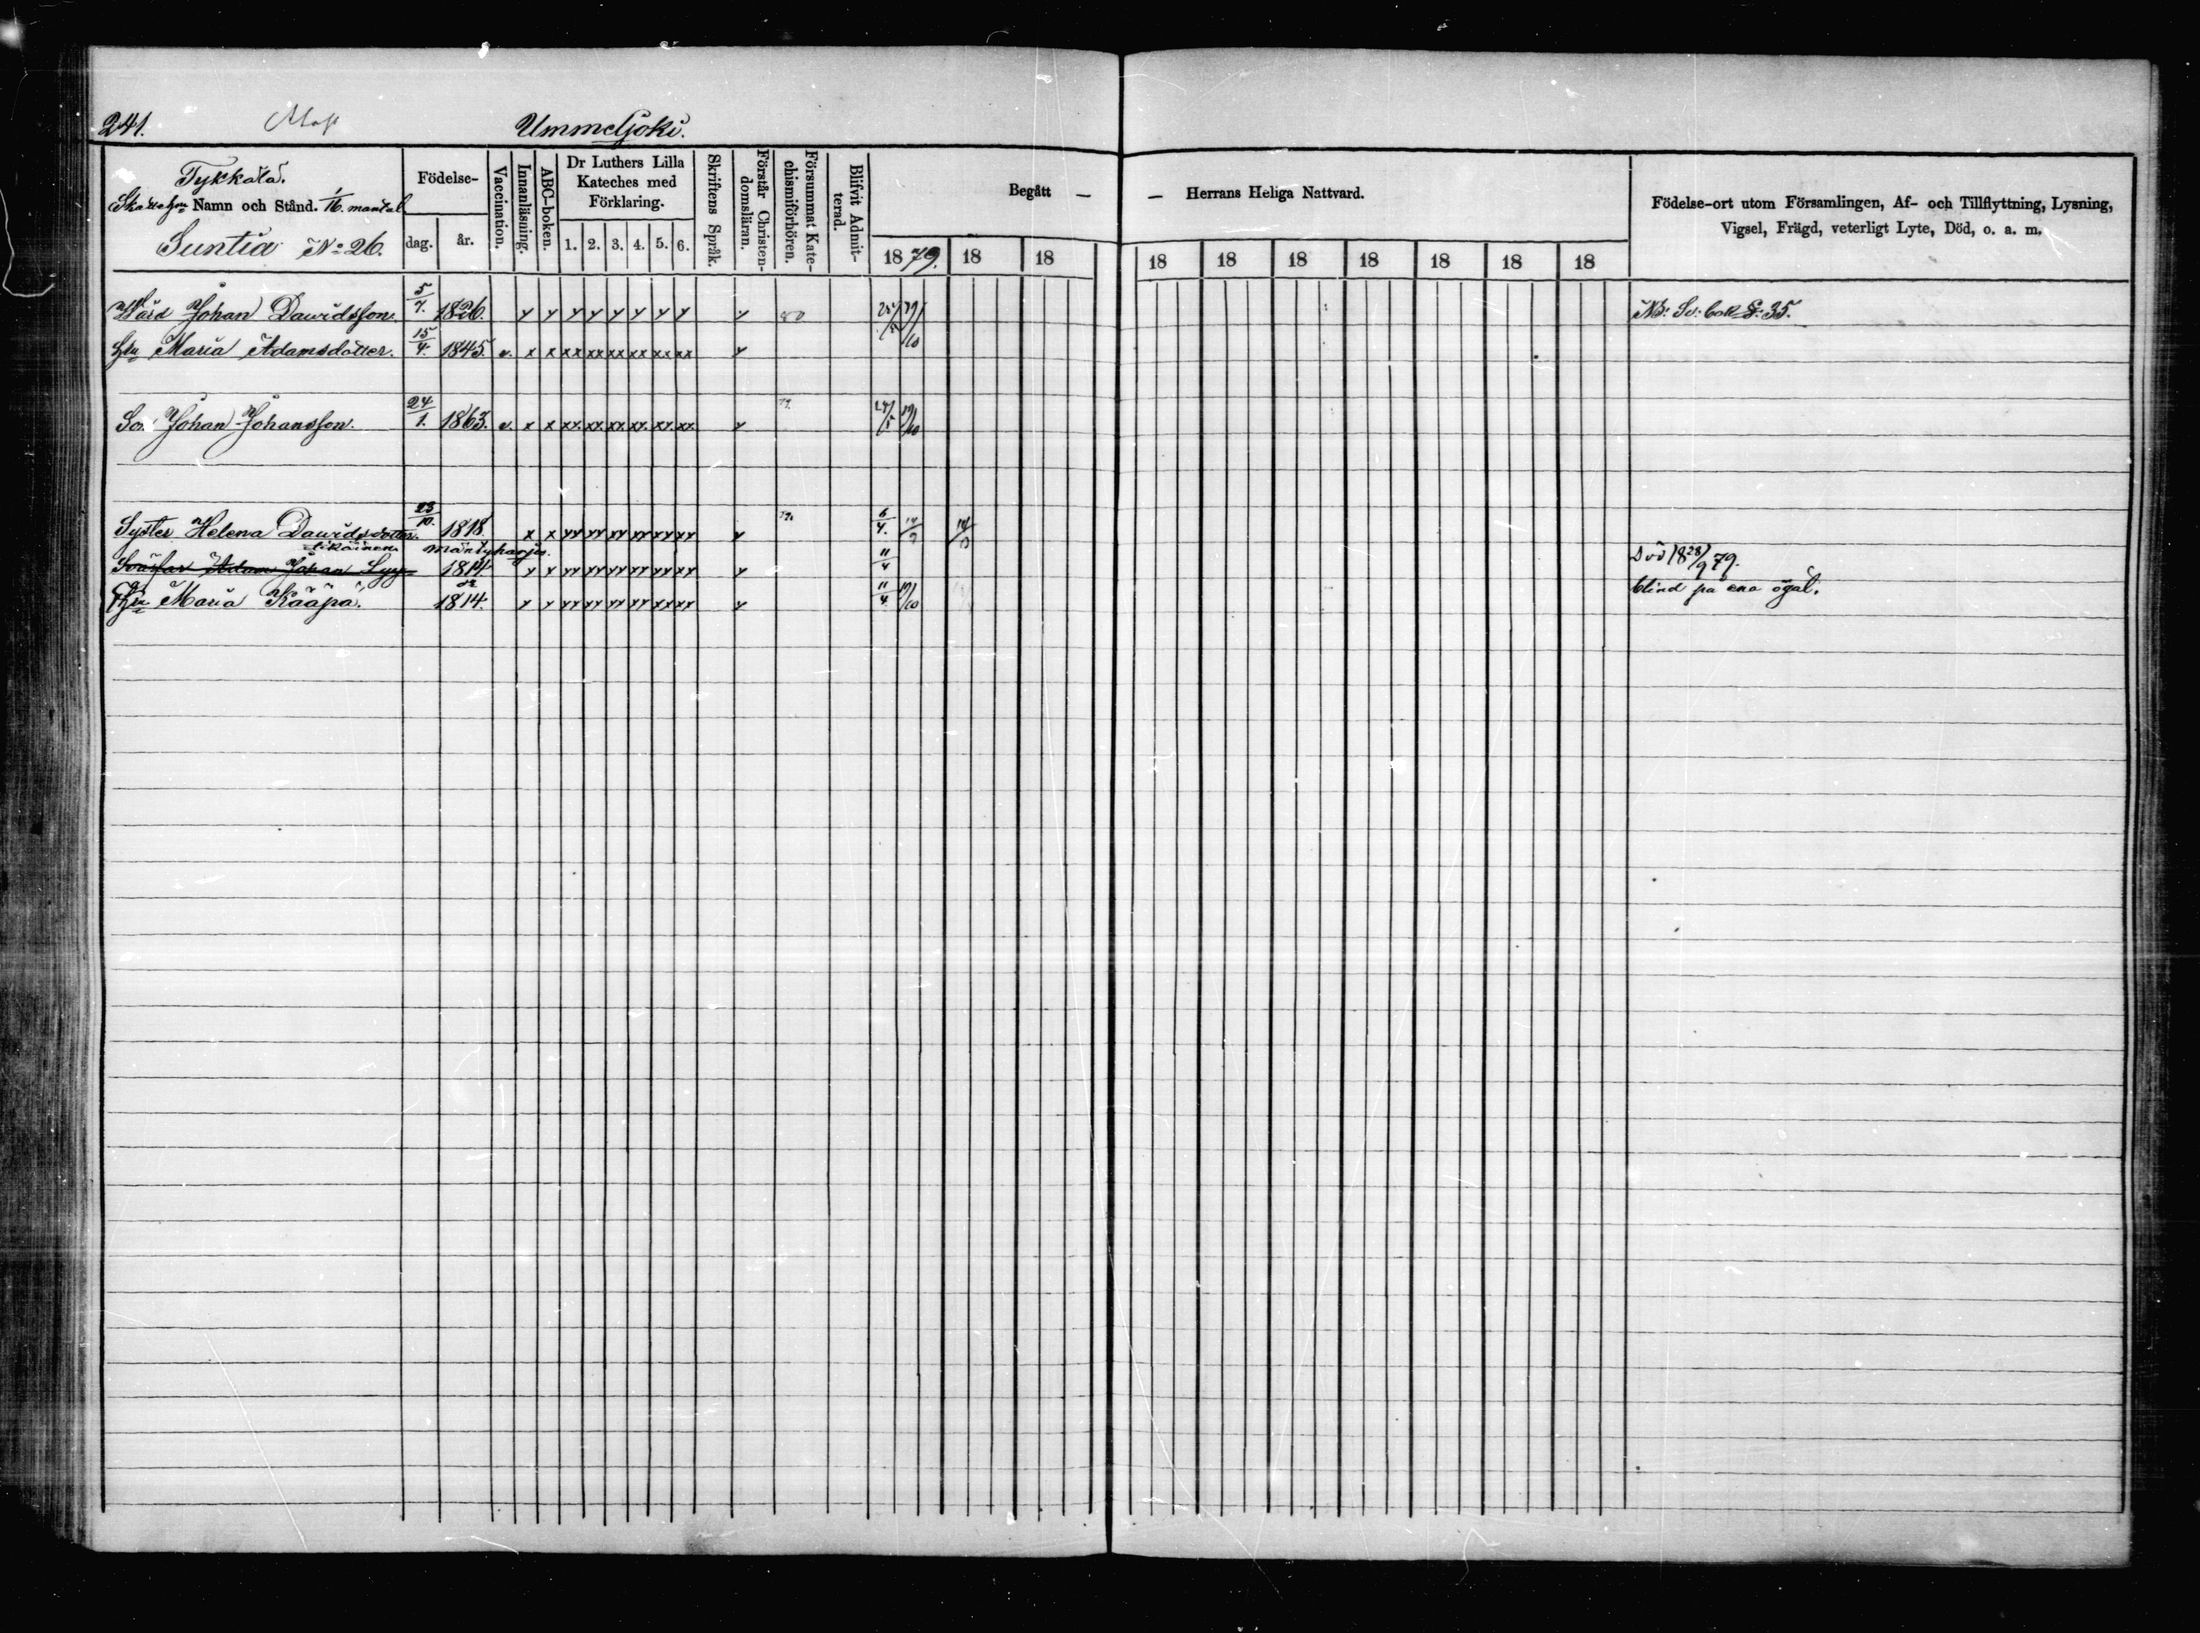 241. Ummeljoki.
Tykkälä.
Skattehm Namn och Stånd. 1/16 mantal
Suntia No 26.
Födelse-
dag. år.
Vaccination.
Innanläsning.
ABC-boken.
Dr Luthers Lilla
Kateches med
Förklaring.
1. 2. 3. 4. 5. 6.
Skriftens Språk.
Förstår Christen-
domsläran.
Försummat Kate-
chismiförhören.
Blifvit Admit-
terad.
Begått — — Herrans Heliga Nattvard.
1879. 18 18 18 18 18 18 18 18 18
Födelse-ort utom Församlingen, Af- och Tillflyttning, Lysning,
Vigsel, Frägd, veterligt Lyte, Död, o. a. m.
Värd Johan Davidsson. 5/7. 1826. y y y y y y y y y 80 25/5 19/10 Nb: Sv: bok S: 35.
hu Maria Adamsdotter. 15/4. 1845. v. x x xx xx xx xx xx xx y
So. Johan Johansson. 24/1. 1863. v. x x xx xx xx xx xx xx y 79. 25/5 19/10
Syster Helena Davidsdotter. 23/10. 1818. x x yy yy yy yy xx xx y 79. 6/4. 14/9
Likainen Mäntyharju.
Svärfar Adam Johan 1814 y y yy yy yy yy xx xx y 11/4 Död 28/9 79.
Hu Maria Kääpä. 1814. y y yy yy yy yy xx xx y 11/4 19/10 blind på ena ögat.